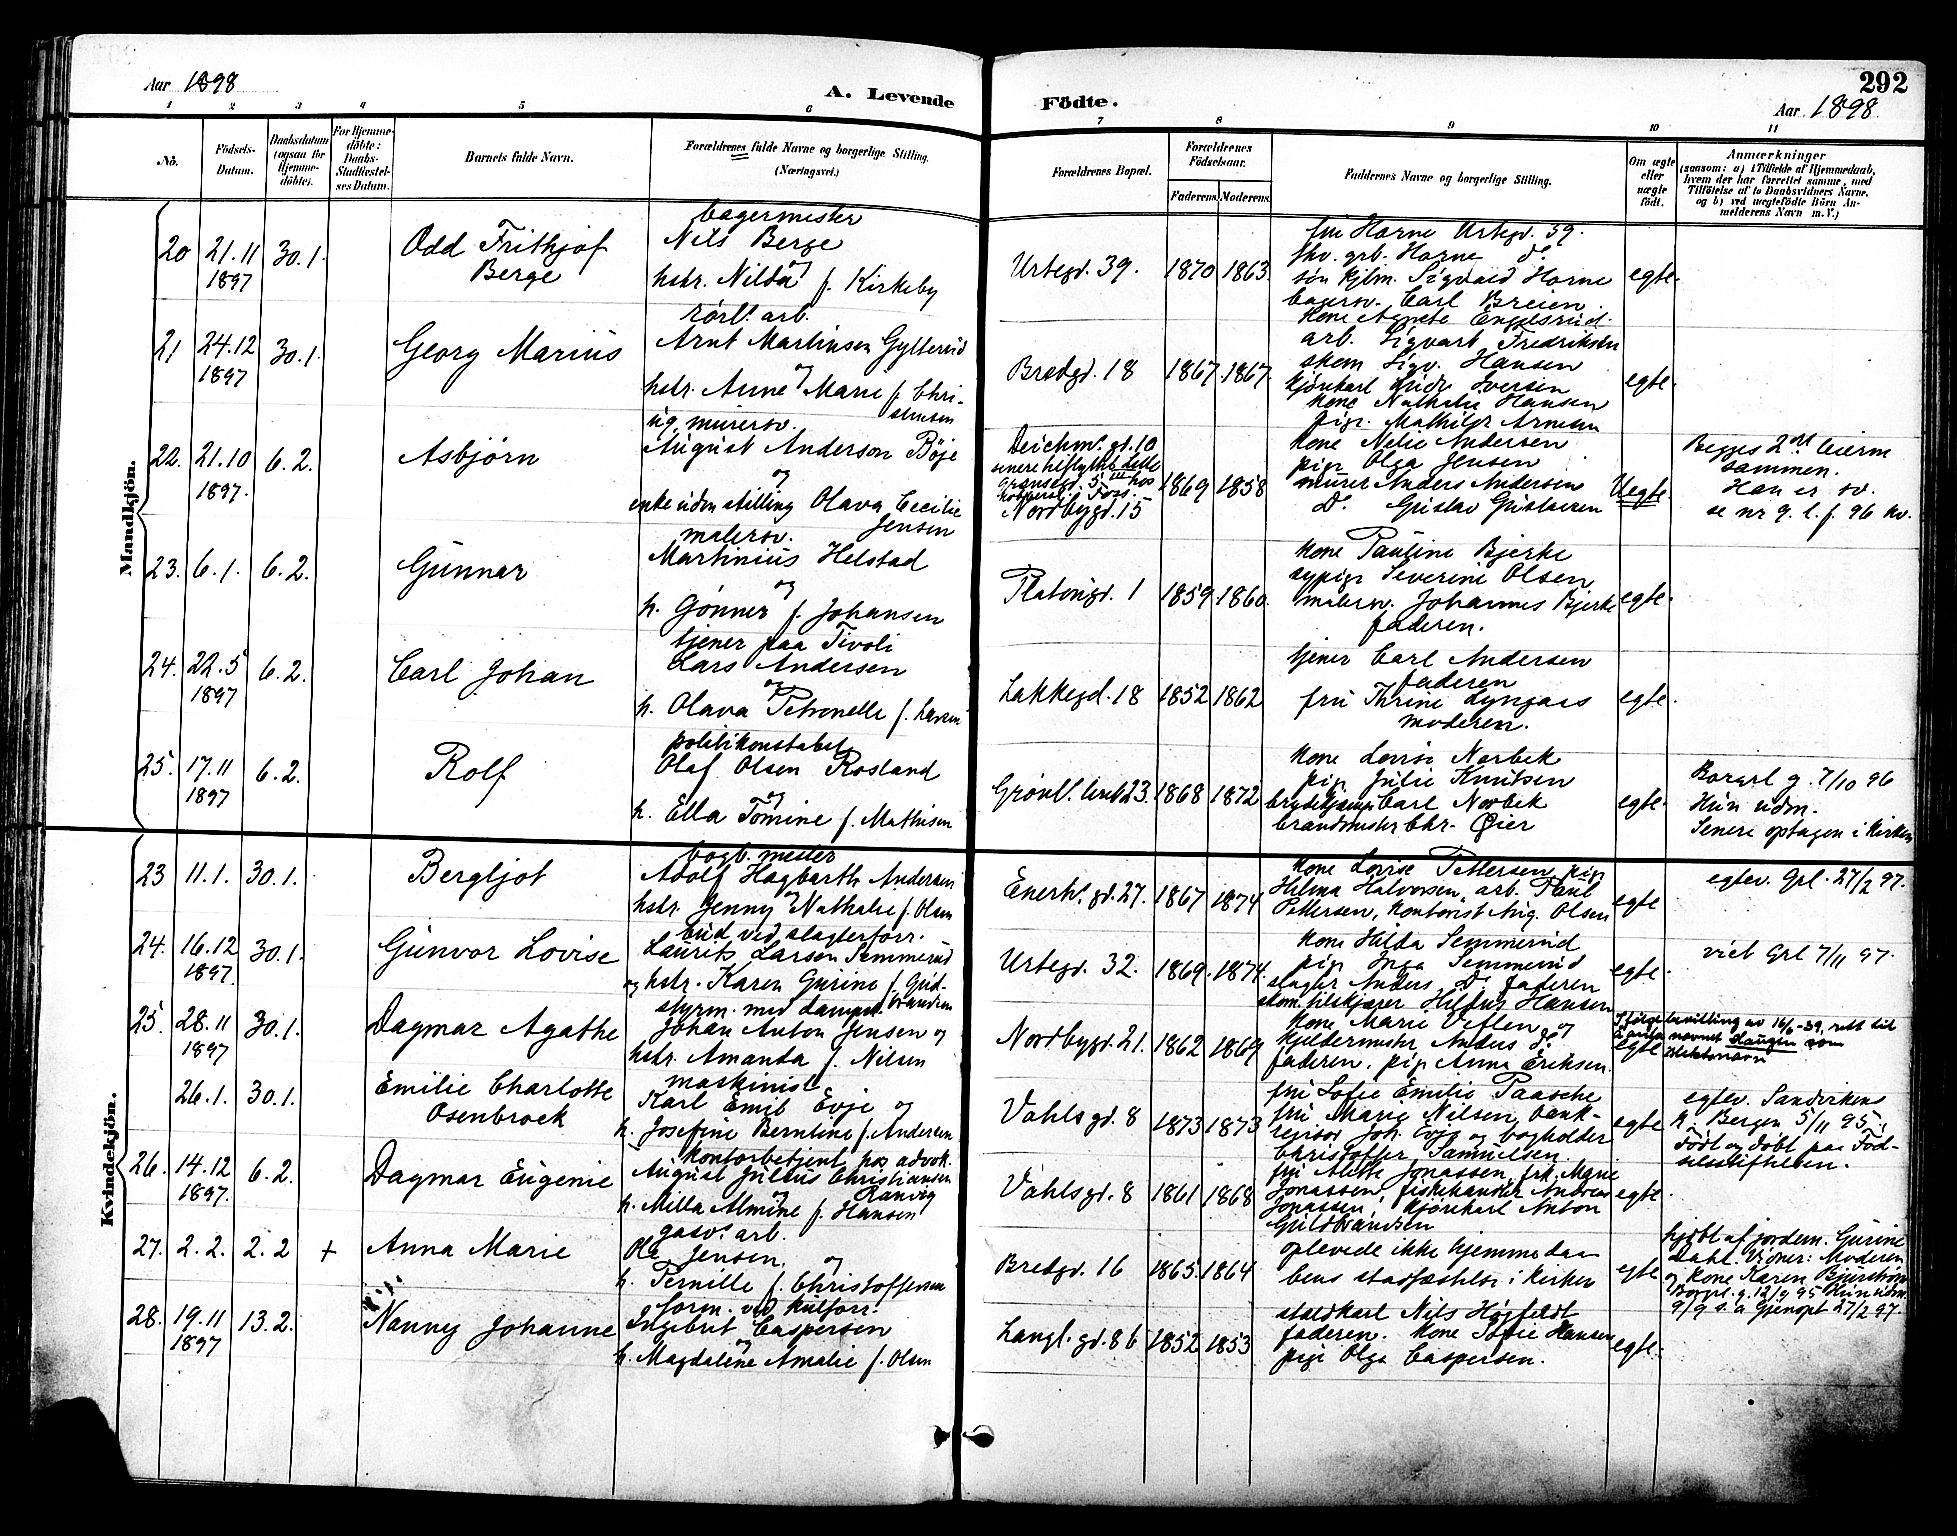 Aar 1898
A. Levende
Födte.
292
Aar 1898.
1 2 3 4 5 6 7 8 9 10 11
No.
Födsels-Datum.
Daabsdatum (ogsaa for Hjemme-döbte).
For Hjemme-döbte: Daabs-Stadfæstel-ses Datum.
Barnets fulde Navn.
Forældrenes fulde Navne og borgerlige Stilling.
(Næringsvei.)
Forældrenes Bopæl.
Forældrenes Födselsaar.
Faderens. Moderens.
Faddernes Navne og borgerlige Stilling.
Om ægte eller uægte født.
Anmærkninger
(saasom: a) i Tilfælde af Hjemmedaab,
hvem der har forrettet samme, med
Tilföielse af to Daabsvidners Navne,
og b) ved uegtefödte Börn An-
melderens Navn m. V.)
Mandkjön.
20 21.11 1897 30.1.
Odd Frithjof
Berge
bagermester
Nils Berge
og
hstr. Nilda f. Kirkeby
Urtegd. 39. 1870 1863
fru Horne Urtegd. 39.
Horne do
søn Sigvald Horne
Carl Breien.
egte.
21 24.12 1897 30.1.
Georg Marius
rørl. arb.
Arnt Martinsen Gyltereid
og
hstr. Anne Marie f. Chri-
stensen
Bredgd. 18 1867. 1867.
Kone Agnete Engelsrud.
arb. Sigvart Fredriksen
skom. Sigv. Hansen
kjørekarl Iversen
Kone Nathalie Hansen
pige. Mathilde Arnesen
egte.
22. 21.10 1897. 6.2.
Asbjørn
ug. murersv.
August Anderson Böje
og
enke uden stilling Olava Cecilie
Jensen
Deichm. gd. 10
Nordbygd. 15
1869 1858
Kone Nelie Andersen
pige Olga Jensen
murer Anders Andersen
Do. Gustav Gustavsen
Uegte.
Begges 2det leierm
sammen.
Han er sv.
se nr 9. l. f. 96 kv.
23. 6.1. 6.2.
Gunnar
malersv.
Martinius Helstad
og
h. Gønner f. Johansen
Platougd. 1 1859. 1860.
Kone Pauline Bjerke
sypige Severine Olsen
malersv. Johannes Bjerke
faderen.
egte.
24. 22.5 1897 6.2.
Carl Johan
tjener paa Tivoli
Lars Andersen
og
h. Olava Petronelle f. Larsen
Lakkegd. 18 1852 1862
tjener Carl Andersen
faderen
fru Thrine Lyngaas
moderen.
egte.
25. 17.11 1897 6.2.
Rolf
politikonstabel
Olaf Olsen Rosland
og
h. Ella Tomine f. Mathisen
Grønl. 23. 1868 1872
Kone Lovise Norbek
pige Julie Knutsen
Carl Norbek
brandmester Chr. Øier
egte.
Borgerl g. 7/10 96
Hun udm.
Senere optagen i Kirken
Kvindekjön.
23 11.1. 30.1.
Bergljot
bogb. mester
Adolf Hagbarth Andersen
og
hstr. Jenny Nathalie f. Olsen
Enerh. gd. 27. 1867 1874
Kone Lovise Pettersen, pige
Hilma Halvorsen, arb. Paul
Pettersen, kontorist Aug. Olsen
egte
egtev. Grl. 27/2 97.
24. 16.12 1897. 30.1.
Gunvor Lovise
bud ved slagterforr.
Laurits Larsen Semmerud
og hstr. Karen Gurine f. Gud-
brandsen
Urtegd. 32. 1869. 1874.
Kone Hilda Semmerud
pige Inga Semmerud
slagter Anders Do. faderen
skom. tilskjærer Hildus Hansen
egte.
viet Grl 7/11 97.
25. 28.11 1897 30.1.
Dagmar Agathe
styrm. med dampsk.
Johan Anton Jensen og
hstr. Amanda f. Nilsen
Nordbygd. 21. 1862 1869
Kone Marie Veflen og
kjeldermester Anders do.
faderen, pige Anna Eriksen.
egte
Ifølge bevilling av 14/6-39, rett til
å anta navnet Haugen som
slektsnavn
26.1. 30.1.
Emilie Charlotte
Osenbroch
maskinist
Karl Emil Evje og
h. Josefine Berntine f. Andersen
Vahlsgd. 8 1873 1873
fru Sofie Emilie Paasche
fru Marie Nilsen, bank-
revisor Joh. Evje og bogholder
Christoffer Samuelsen.
egte
egtev. Sandvikens
k. Bergen 5/11 95.
Födt og döbt paa Föd-
selsstiftelsen.
26. 14.12 1897. 6.2.
Dagmar Eugenie
kontorbetjent hos advok.
August Julius Christiansen
Ranvig
og
h. Milla Almine f. Hansen
Vahlsgd. 8 1861 1868
fru Alette Jonassen, frk. Marie
Jonassen, fiskehandler Andreas
Jonassen, kjørekarl Anton
Guldbrandsen
egte.
27. 2.2. 2.2 +
Anna Marie
gasv. arb.
Ole Jensen og
h. Pernille f. Christoffersen
Bredgd. 16 1865. 1864
oplevede ikke hjemmedaa-
bens stadfæstelse i kirken
egte
hjdbt af jordem. Gurine
Dahl. Vidner: Moderen
og Kone Karen Bjerstrøm
Borgerl. g. 12/9 95 Hun udm.
9/9 s. a. Gjenopt 27/2 97.
28. 19.11 1897 13.2.
Nanny Johanne
form. ved kulforr.
Ingebrit Caspersen
og
h. Magdalene Amalie f. Olsen
Langl. gd. 86 1852 1853
staldkarl Nils Højfeldt
faderen. Kone Sofie Hansen
pige Olga Caspersen.
egte.